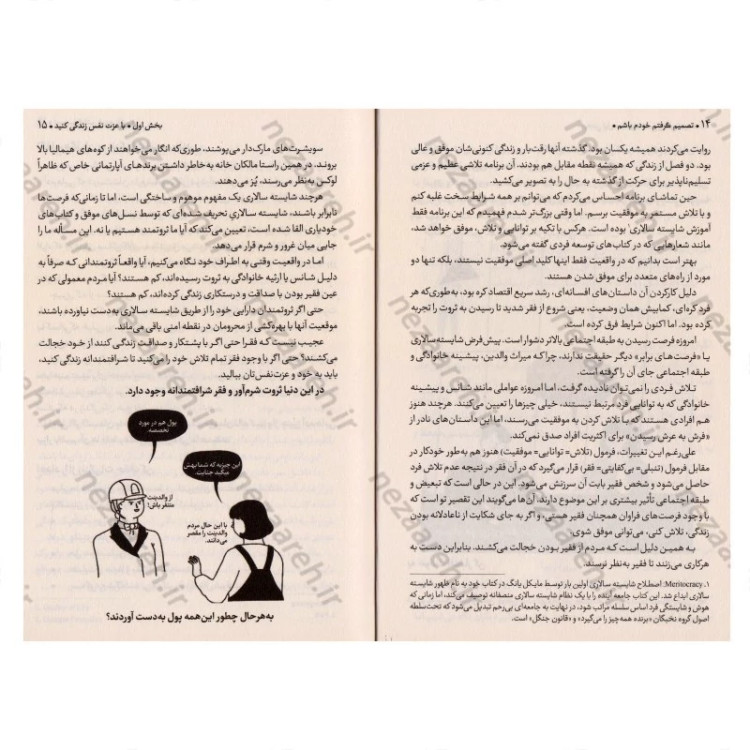 ۱۴ • تصمیم گرفتم خودم باشم •
روایت می‌کردند همیشه یکسان بود: گذشته آنها رقت‌بار و زندگی کنونی‌شان موفق و عالی
بود. دو فصل از زندگی که همیشه نقطه مقابل هم بودند. آن برنامه تلاشی عظیم و عزمی
تسلیم‌ناپذیر برای حرکت از گذشته به حال را به تصویر می‌کشید.
حین تماشای برنامه احساس می‌کردم که می‌توانم بر همه شرایط سخت غلبه کنم
و با تلاش مستمر به موفقیت برسم. اما وقتی بزرگ‌تر شدم فهمیدم که این برنامه فقط
آموزش شایسته سالاری۱ بوده است. هرکس با تکیه بر توانایی و تلاش، موفق خواهد شد،
مانند شعارهایی که در کتاب‌های توسعه فردی گفته می‌شود.
بهتر است بدانیم که در واقعیت فقط اینها کلید اصلی موفقیت نیستند، بلکه تنها دو
مورد از راه‌های متعدد برای موفق شدن هستند.
دلیل کارکردن آن داستان‌های افسانه‌ای، رشد سریع اقتصاد کره بود، به‌طوری‌که هر
فرد کره‌ای، کمابیش همان وضعیت، یعنی شروع از فقر شدید تا رسیدن به ثروت را تجربه
کرده بود. اما اکنون شرایط فرق کرده است.
امروزه فرصت رسیدن به طبقه اجتماعی بالاتر دشوار است. پیش‌فرض شایسته‌سالاری
با «فرصت‌های برابر» دیگر حقیقت ندارند، چراکه میراث والدین، پیشینه خانوادگی و
طبقه اجتماعی جای آن را گرفته است.
تلاش فردی را نمی‌توان نادیده گرفت، اما امروزه عواملی مانند شانس و پیشینه
خانوادگی که به توانایی فرد مرتبط نیستند، خیلی چیزها را تعیین می‌کنند. هرچند هنوز
هم افرادی هستند که با تلاش کردن به موفقیت می‌رسند، اما این داستان‌های نادر از
«فرش به عرش رسیدن» برای اکثریت افراد صدق نمی‌کند.
علی‌رغم این تغییرات، فرمول (تلاش= توانایی= موفقیت) هنوز هم به‌طور خودکار در
مقابل فرمول (تنبلی= بی‌کفایتی= فقر) قرار می‌گیرد که در آن فقر در نتیجه عدم تلاش فرد
حاصل می‌شود و شخص فقیر بابت آن سرزنش می‌شود. این در حالی است که تبعیض و
طبقه اجتماعی تأثیر بیشتری بر این موضوع دارند. آن‌ها می‌گویند این تقصیر تو است که
با وجود فرصت‌های فراوان همچنان فقیر هستی، و اگر به جای شکایت از ناعادلانه بودن
زندگی، تلاش کنی، می‌توانی موفق شوی.
به همین دلیل است که مردم از فقیر بودن خجالت می‌کشند. بنابراین دست به
هرکاری می‌زنند تا فقیر به‌نظر نرسند.
۱. Meritocracy: اصطلاح شایسته سالاری اولین بار توسط مایکل یانگ در کتاب خود به نام ظهور شایسته
سالاری ابداع شد. این کتاب جامعه آینده را با یک نظام شایسته سالاری منصفانه توصیف می‌کند، اما زمانی که
هوش و شایستگی فرد اساس سلسله مراتب شود، در نهایت به جامعه‌ای بی‌رحم تبدیل می‌شود که تحت‌سلطه
اصول گروه نخبگان «برنده همه چیز را می‌گیرد» و «قانون جنگل» است.
بخش اول • با عزت نفس زندگی کنید • ۱۵
سویشرت‌های مارک‌دار می‌پوشند، طوری‌که انگار می‌خواهند از کوه‌های هیمالیا بالا
بروند. در همین راستا مالکان خانه به‌خاطر داشتن برندهای آپارتمانی خاص که ظاهراً
لوکس به‌نظر می‌رسند، پُز می‌دهند.
هرچند شایسته سالاری یک مفهوم موهوم و ساختگی است، اما تا زمانی‌که فرصت‌ها
نابرابر باشند، شایسته سالاریِ تحریف شده‌ای که توسط نسل‌های موفق و کتاب‌های
خودیاری القا شده است، تعیین می‌کند که آیا ما ثروتمند هستیم یا نه. این مسأله ما را
جایی میان غرور و شرم قرار می‌دهد.
اما در واقعیت وقتی به اطراف خود نگاه می‌کنیم، آیا واقعاً ثروتمندانی که صرفاً به
دلیل شانس یا ارثیه خانوادگی به ثروت رسیده‌اند، کم هستند؟ آیا مردم معمولی که در
عین فقیر بودن با صداقت و درستکاری زندگی کرده‌اند، کم هستند؟
حتی اگر ثروتمندان دارایی خود را از طریق شایسته سالاری به‌دست نیاورده باشند،
موقعیت آنها با بهره‌کشی از محرومان در نقطه امنی باقی می‌ماند.
عجیب نیست که فقرا حتی اگر با پشتکار و صداقت زندگی کنند از خود خجالت
می‌کشند؟ حتی اگر با وجود فقر تمام تلاش خود را می‌کنید تا شرافتمندانه زندگی کنید،
باید به خود و عزت‌نفس‌تان ببالید.
در این دنیا ثروت شرم‌آور و فقر شرافتمندانه وجود دارد.
پول هم در مورد
تخصصه.
این چیزیه که شما بهش
میگید جنایت.
از والدینت
متنفر باش!
با این حال مردم
والدینت را مقصر
می‌دانند.
به‌هرحال چطور این‌همه پول به‌دست آوردند؟
nezaareh.ir